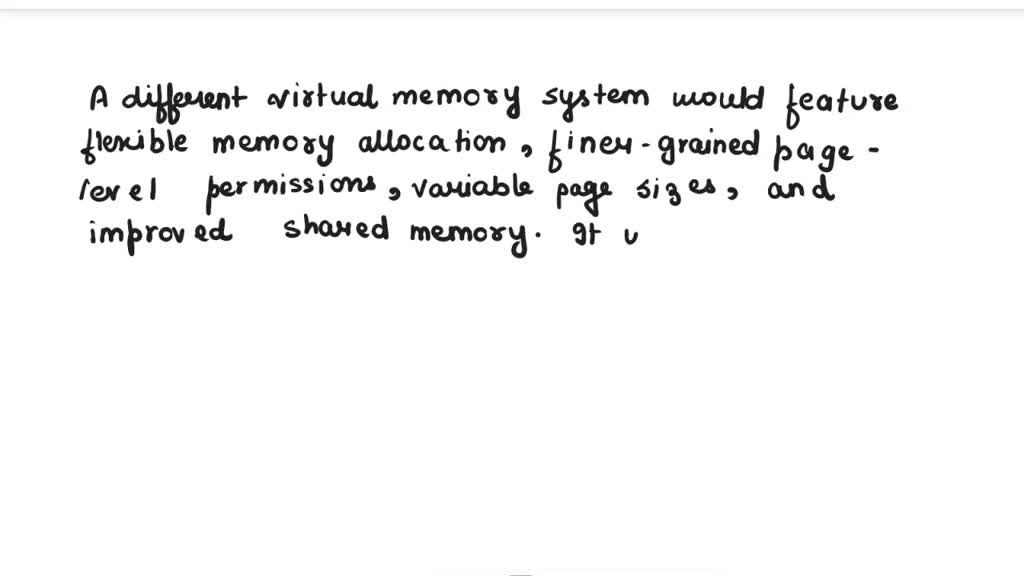 A different virtual memory system would feature
flexible memory allocation, finer-grained page-
level permissions, variable page sizes, and
improved shared memory. It u